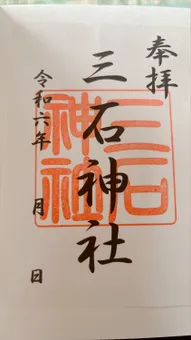 奉拝
三石神社
令和六年 月 日
三石神社